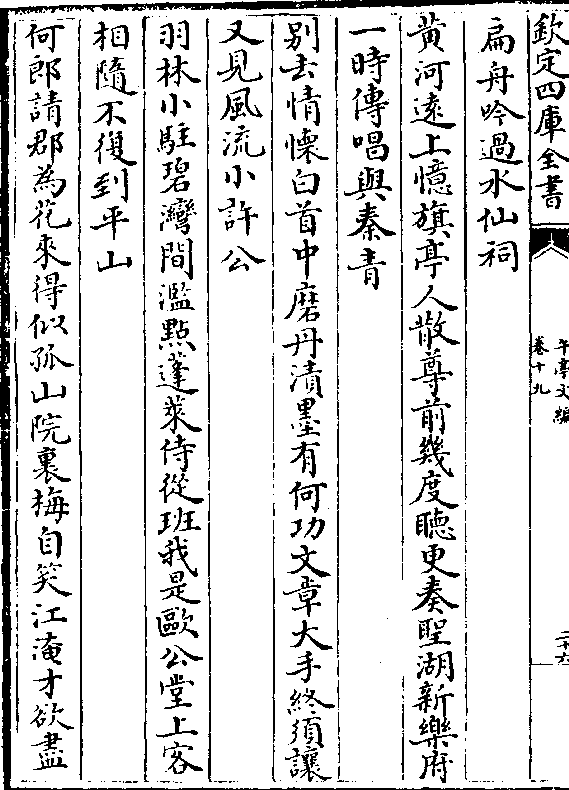 欽定四庫全書
午亭文編
卷十九
二十六
扁舟吟過水仙祠
黃河遠上憶旗亭人散尊前幾度聽更奏聖湖新樂府
一時傳唱與秦青
別去情懷白首中磨丹漬墨有何功文章大手終須讓
又見風流小許公
羽林小駐碧灣間濫點蓬萊侍從班我是歐公堂上客
相隨不復到平山
何郎請郡為花來得似孤山院裏梅自笑江淹才欲盡